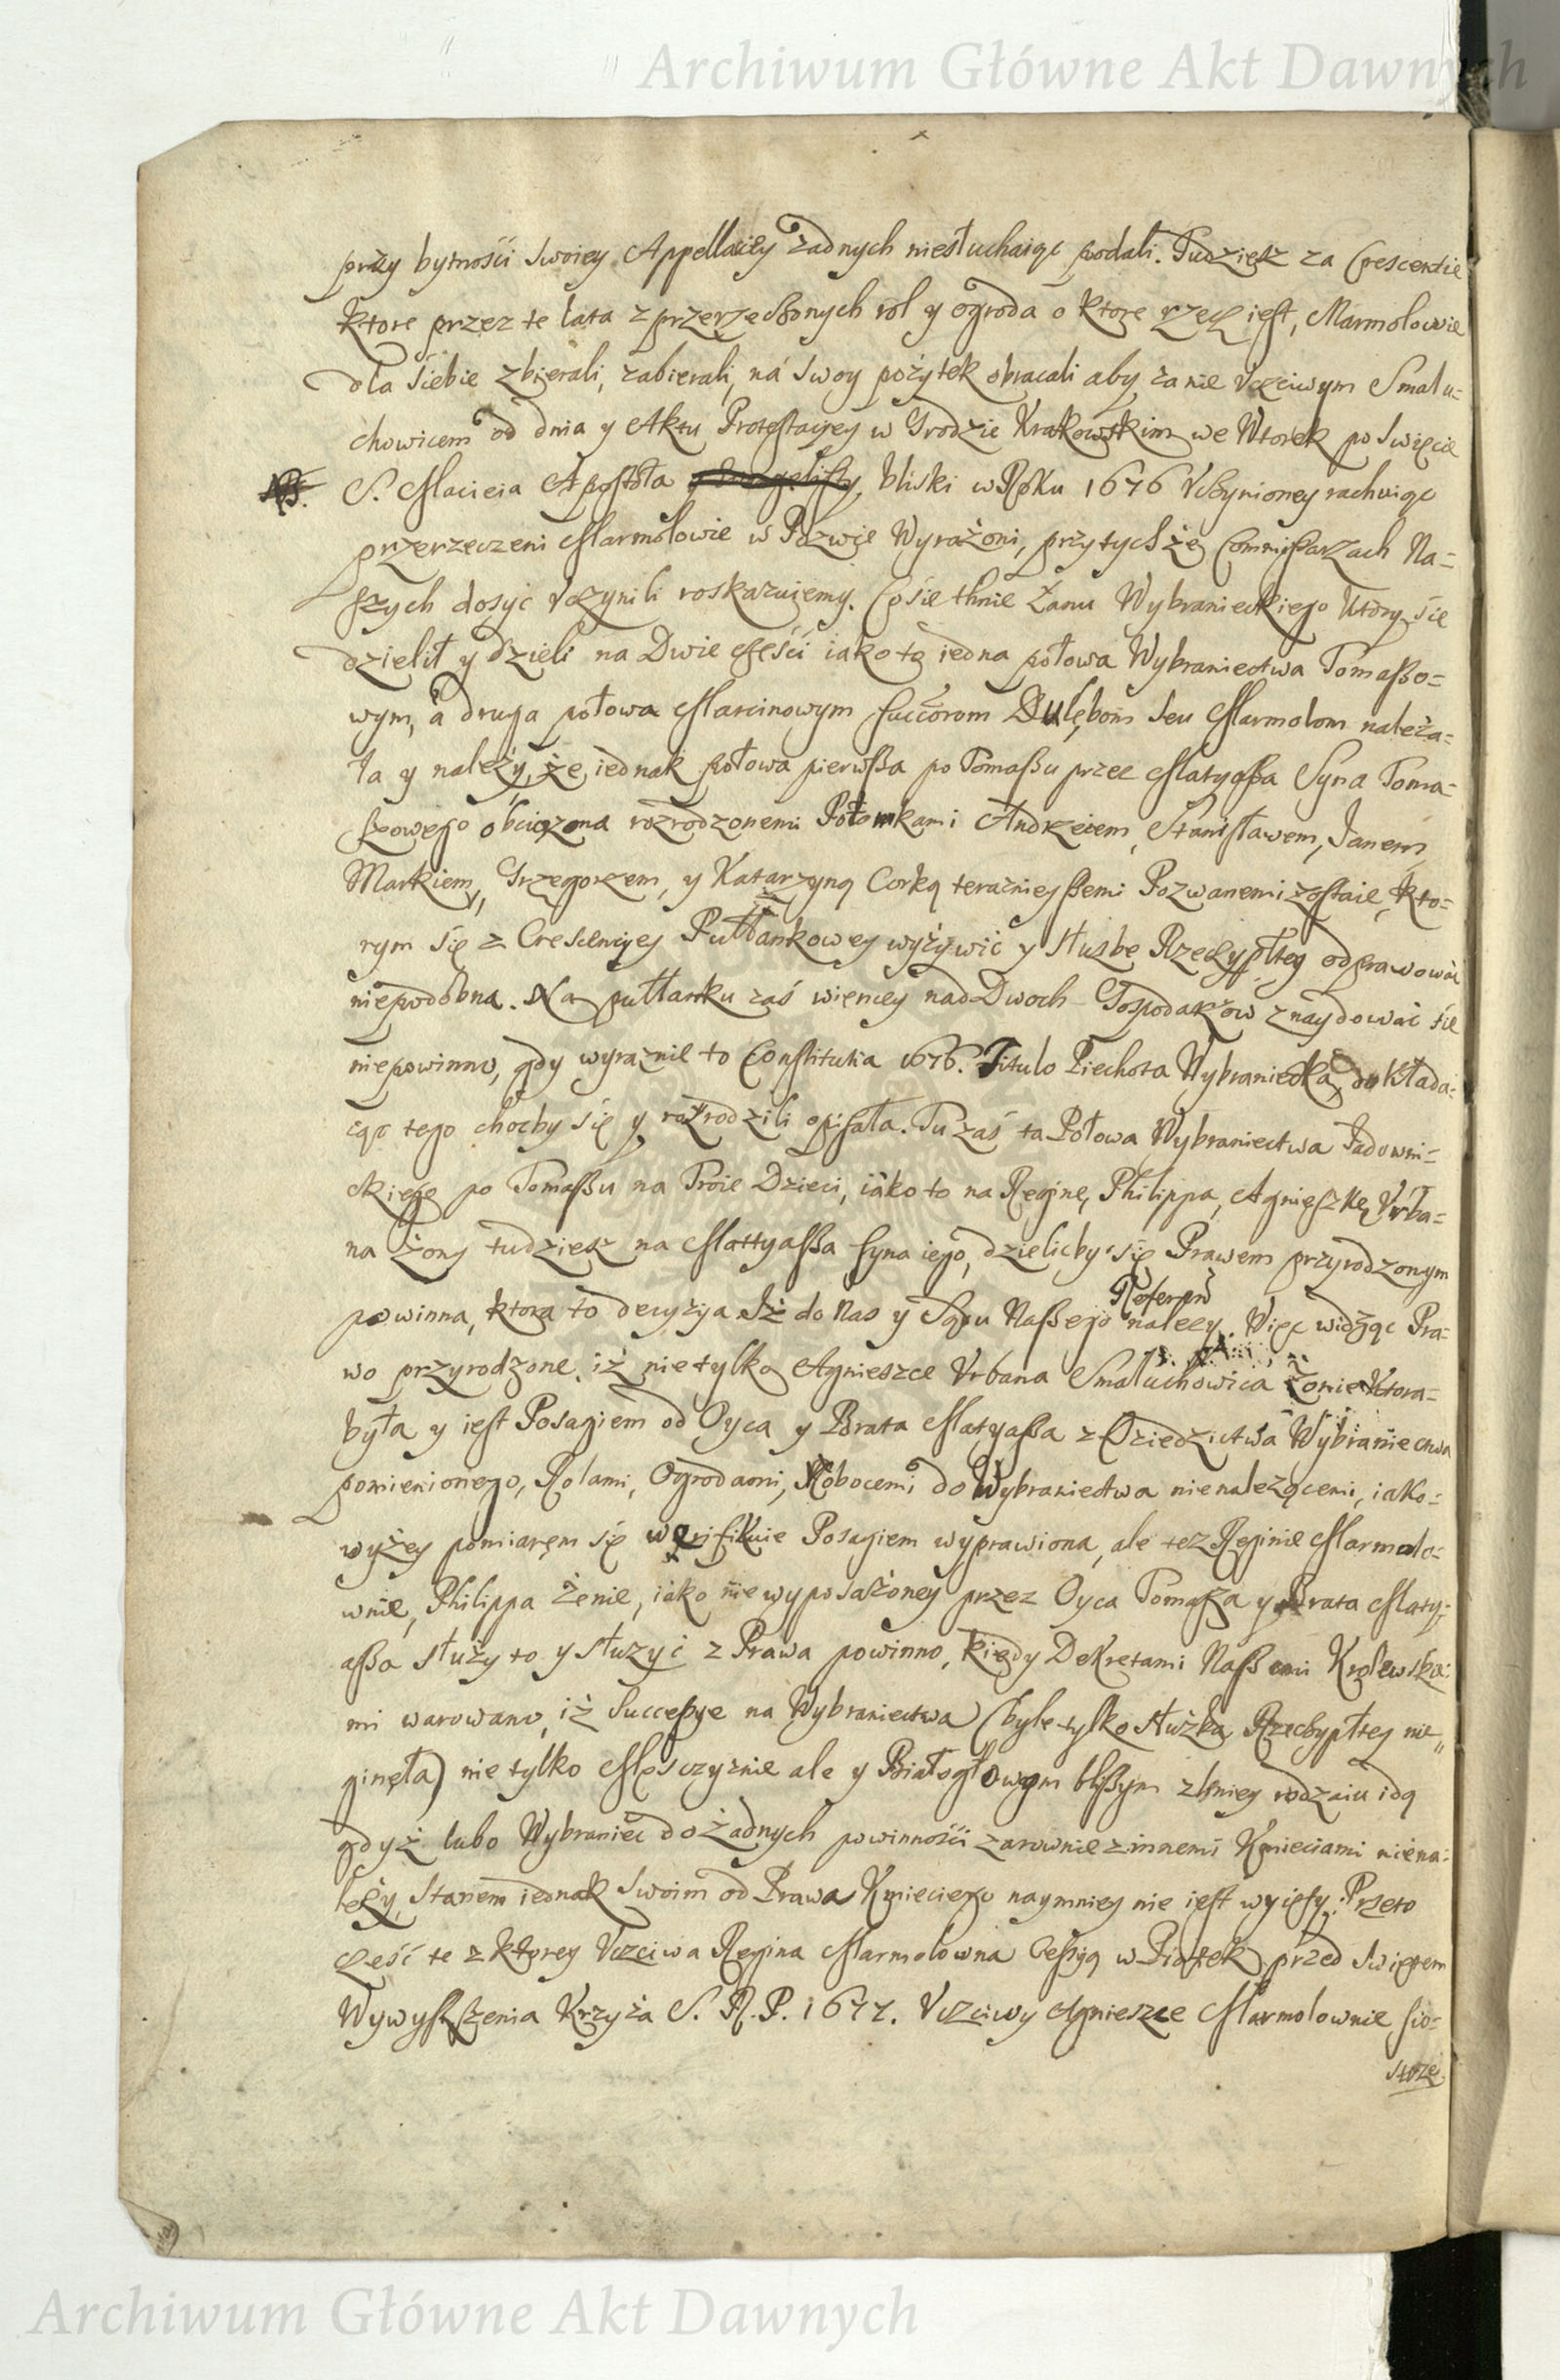 Archiwum Główne Akt Dawnych
przy bytności swoiey Appellaciey żadnych niesłuchaiąc podali. Tudziesz za Crescentie
ktore przez te lata z przerzeczonych rol y ogroda o ktore rzecz iest, Marmolowie
dla siebie zbierali, zabierali, ná swoy pożytek obracali aby za nie Vczciwym Smalu=
chowicem od dnia y Aktu Protestacyey w Grodzie Krakowskim we Wtorek po Swięcie
S. Macieia Apostoła bliski w Roku 1676 Vczynioney rachuiąc
przerzeczeni Marmolowie w Pozwie Wyrażoni, przy tychże Commissarzach Na=
szych dosyć Vczynili roskazuiemy. Co sie tknie Łanu Wybranieckiego ktory sie
dzielił y dzieli na Dwie części iako to iedna połowa Wybraniectwa Tomaszo=
wym, á druga połowa Marcinowym Succorom Dulębom seu Marmolom należa=
ła y należy, że iednak połowa pierwsza po Tomaszu przez Matyasza Syna Toma=
szowego obciązona rozrodzonemi Potomkami Andrzeiem, Stanisławem, Janem,
Markiem, Grzegorzem, y Katarzyną Corką teraznieyszemi Pozwanemi zostaie, kto=
rym się z Crescencyey Pułłankowey wyżywić y służbę Rzeczyptey odprawować
niepodobna. Na pułłanku zaś wiencey nad Dwoch Gospodarzow znaydować sie
niepowinno, gdy wyraznie to Constitutia 1676. Titulo Piechota Wybraniecka, dokłada=
iąc tego choćby się y rozrodzili opisała. Tu zaś ta Połowa Wybraniectwa Jadowni=
ckiego po Tomaszu na Troie Dzieci, iáko to na Reginę, Philippa, Agnieszkę Vrba=
na żony tudziesz na Mattyasza syna iego, dzielicby się Prawem przyrodzonym
powinna, ktora to decyzya Iż do Nas y Sądu Naszego Referen należy. Więc widząc Pra=
wo przyrodzone, iż nie tylko Agnieszce Vrbana Smaluchowica Żonie ktora=
była y iest Posagiem od Oyca y Brata Matyasza z Dziedzictwa Wybraniectwa
pomienionego, Rolami, Ogrodami, Robocemi do Wybraniectwa nienalezącemi, iako=
wyżey pomiarem się weryfikuie Posagiem wyprawiona, ale tez Reginie Marmolo=
wnie, Philippa Żenie, iáko nie wyposażoney przez Oyca Tomasza y Brata Maty=
asza służy to y służyć z Prawa powinno, kiedy Dekretami Naszemi Krolewska=
mi warowano, iż Successye na Wybraniectwa (byle tylko służba Rzeczyptey nie=
ginęła) nie tylko Męsczyznie ale y Białogłowym bliszym z linieу rodzaiu idą
gdyż lubo Wybraniec do żadnych powinnośći zarownie z innemi Kmieciami niena=
leży, Stanem iednak swoim od Prawa Kmieciego naymniey nie iest wyięty: Przeto
część te z ktorey Vczciwa Regina Marmolowna Cessyą w Piątek przed Swiętem
Wywyszszenia Krzyża S. R. P. 1677. Vczciwy Agnieszce Marmolownie sio=
strze
Archiwum Główne Akt Dawnych